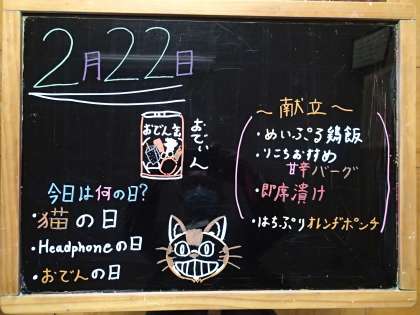 2月22日
おでん缶
おでぃん
今日は何の日?
・猫の日
・Headphoneの日
・おでんの日
～献立～
・めいぷる鶏飯
・りこちおすすめ
甘辛バーグ
・即席漬け
・はちぷりオレンヂポンチ